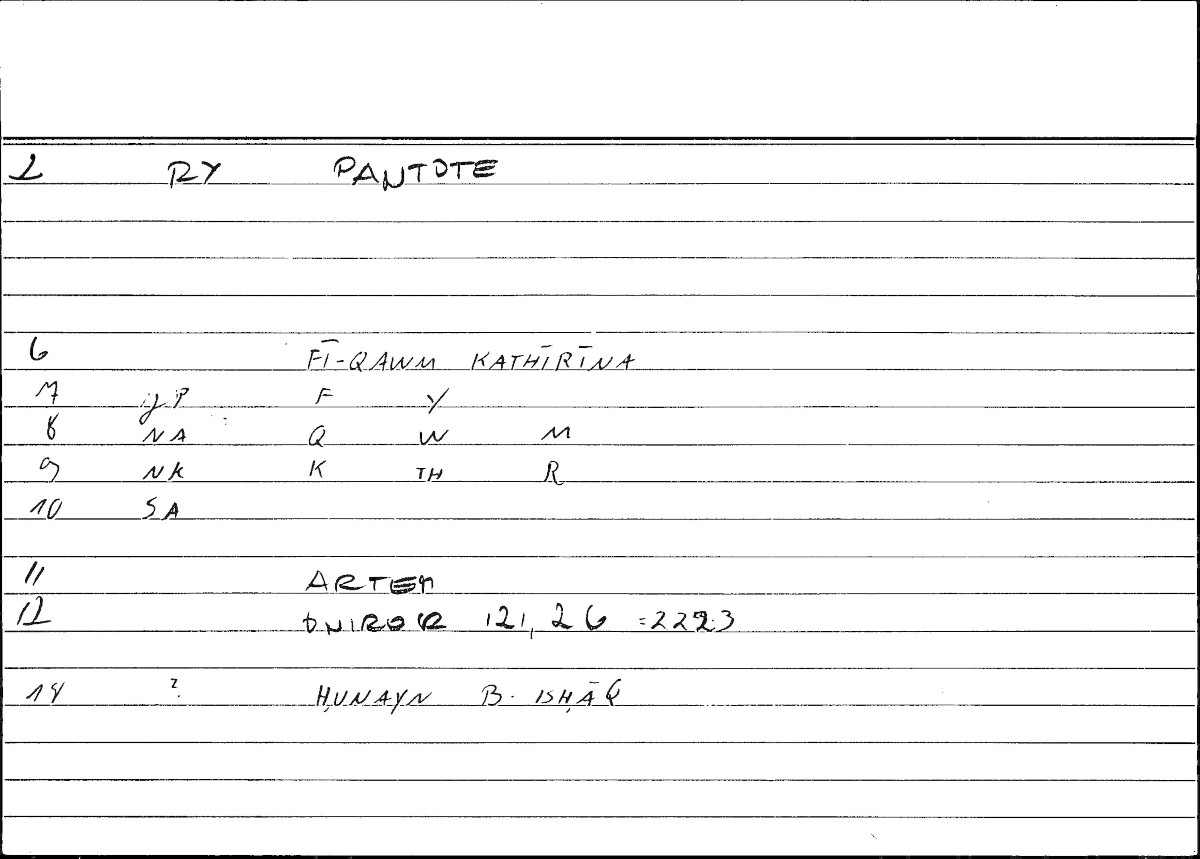 1 RY PANTOTE
6 FĪ-QAWM KATHĪRĪNA
7 gP F Y
8 NA Q W M
9 NK K TH R
10 SA
11 ARTEM
12 ONIROCR 121, 26 =222.3
14 ? ḤUNAYN B. ISḤĀQ